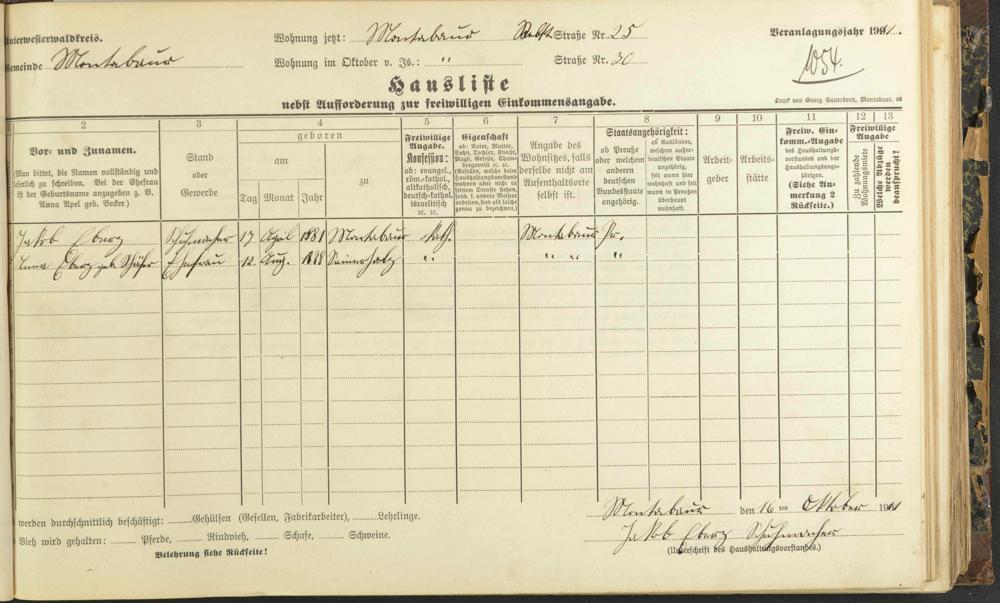 Unterwesterwaldkreis.
Wohnung jetzt: Montabaur Straße Nr. 25
Veranlagungsjahr 1911.
Gemeinde Montabaur
Wohnung im Oktober v. Js.: " Straße Nr. 30
1054.
Hausliste
nebst Aufforderung zur freiwilligen Einkommensangabe.
Druck von Georg Sauerborn, Montabaur.
2 3 4 5 6 7 8 9 10 11 12 13
Vor- und Zunamen.
(Man bittet, die Namen vollständig und
leserlich zu schreiben. Bei der Ehefrau
ist der Geburtsname anzugeben z. B.
Anna Apel geb. Becker.)
Stand
oder
Gewerbe
geboren
am
zu
Tag Monat Jahr
Freiwillige
Angabe.
Konfession:
ob: evangel.,
röm.-kathol.,
altkatholisch,
deutsch-kathol.
israelitisch
ꝛc. ꝛc.
Eigenschaft
ob: Vater, Mutter,
Sohn, Tochter, Knecht,
Magd, Geselle, Cham-
bergarnist ꝛc. ꝛc.
(Gesellen, welche beim
Haushaltungsvorstand
wohnen aber nicht in
seinem Dienste stehen,
sind als solche
genau zu bezeichnen.)
Angabe des
Wohnsitzes, falls
derselbe nicht am
Aufenthaltsorte
selbst ist.
Staatsangehörigkeit:
ob Preuße
oder welchem
anderen
deutschen
Bundesstaate
angehörig.
ob Ausländer,
welchem außer-
deutschen Staate
angehörig,
seit wann hier
wohnhaft und seit
wann in Preußen
überhaupt
wohnhaft.
Arbeit-
geber
Arbeits-
stätte
Freiw. Ein-
komm.-Angabe
des Haushaltungs-
vorstandes und der
Haushaltungsange-
hörigen.
(Siehe An-
merkung 2
Rückseite.)
Freiwillige
Angabe
Zu zahlende
Wohnungsmiete
Welche Abzüge
werden
beansprucht?
Jakob Eberz Schuhmacher 17 April 1881 Montabaur kath. Montabaur Pr.
Anna Eberz geb. Ehefrau 12. Aug. 1888 " " " "
werden durchschnittlich beschäftigt: Gehülfen (Gesellen, Fabrikarbeiter), Lehrlinge.
Vieh wird gehalten: Pferde, Rindvieh, Schafe, Schweine.
Belehrung siehe Rückseite!
Montabaur den 16 ten Oktober 1911
Jakob Eberz Schuhmacher
(Unterschrift des Haushaltungsvorstandes.)